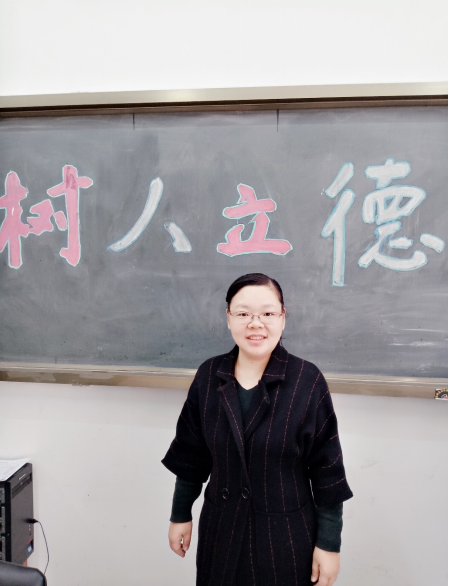 树人立德